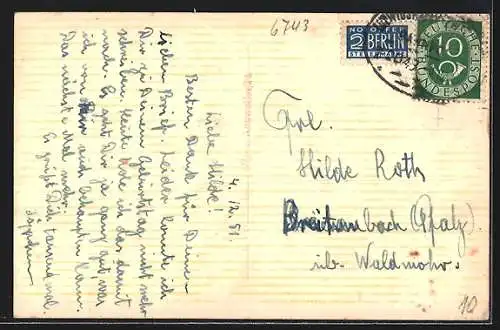 6743
NOTOPFER
2 BERLIN
STEUERMARKE
10
DEUTSCHE BUNDESPOST
4. 12. 51.
Liebe Hilde!
Besten Dank für Deinen
lieben Brief. Leider konnte ich
Dir zu Deinem Geburtstag nicht mehr
schreiben. Heute hole ich das damit
nach. Es geht Dir ja ganz gut was
ich von auch behaupten kann.
Das nächste Mal mehr.
Es grüßt Dich tausend mal
Frl.
Hilde Roth
Breitenbach (Pfalz)
üb. Waldmohr.
10